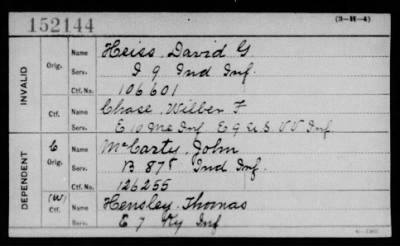 152144
(3-H-4)
INVALID
Orig.
Name Heiss, David G
Serv. I 9 Ind Inf.
Ctf. No. 106601
Ctf.
Name Chase, Wilber F
Serv. E 10 Me Inf E 9 U.S. V V Inf.
DEPENDENT
C
Orig.
Name McCarty, John
Serv. B 87" Ind Inf.
Ctf. No. 126255
(W)
Ctf.
Name Hensley, Thomas
Serv. E 7 Ky Inf